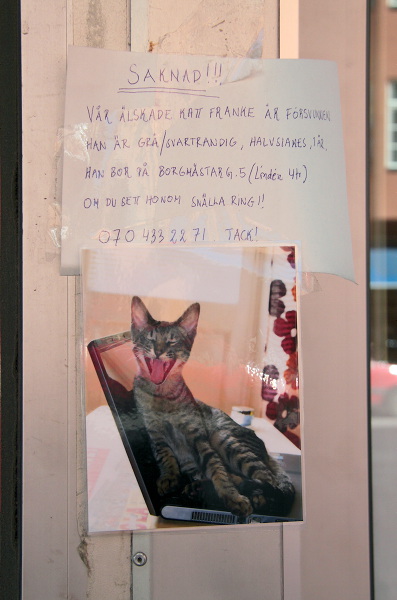 SAKNAD!!!
VÅR ÄLSKADE KATT FRANKE ÄR FÖRSVUNNEN
HAN ÄR GRÅ/SVARTRANDIG, HALVSIAMES, 1 ÅR.
HAN BOR PÅ BORGMÄSTARG. 5 (Lindén 4tr)
OM DU SETT HONOM SNÄLLA RING!!
070 433 22 71 TACK!